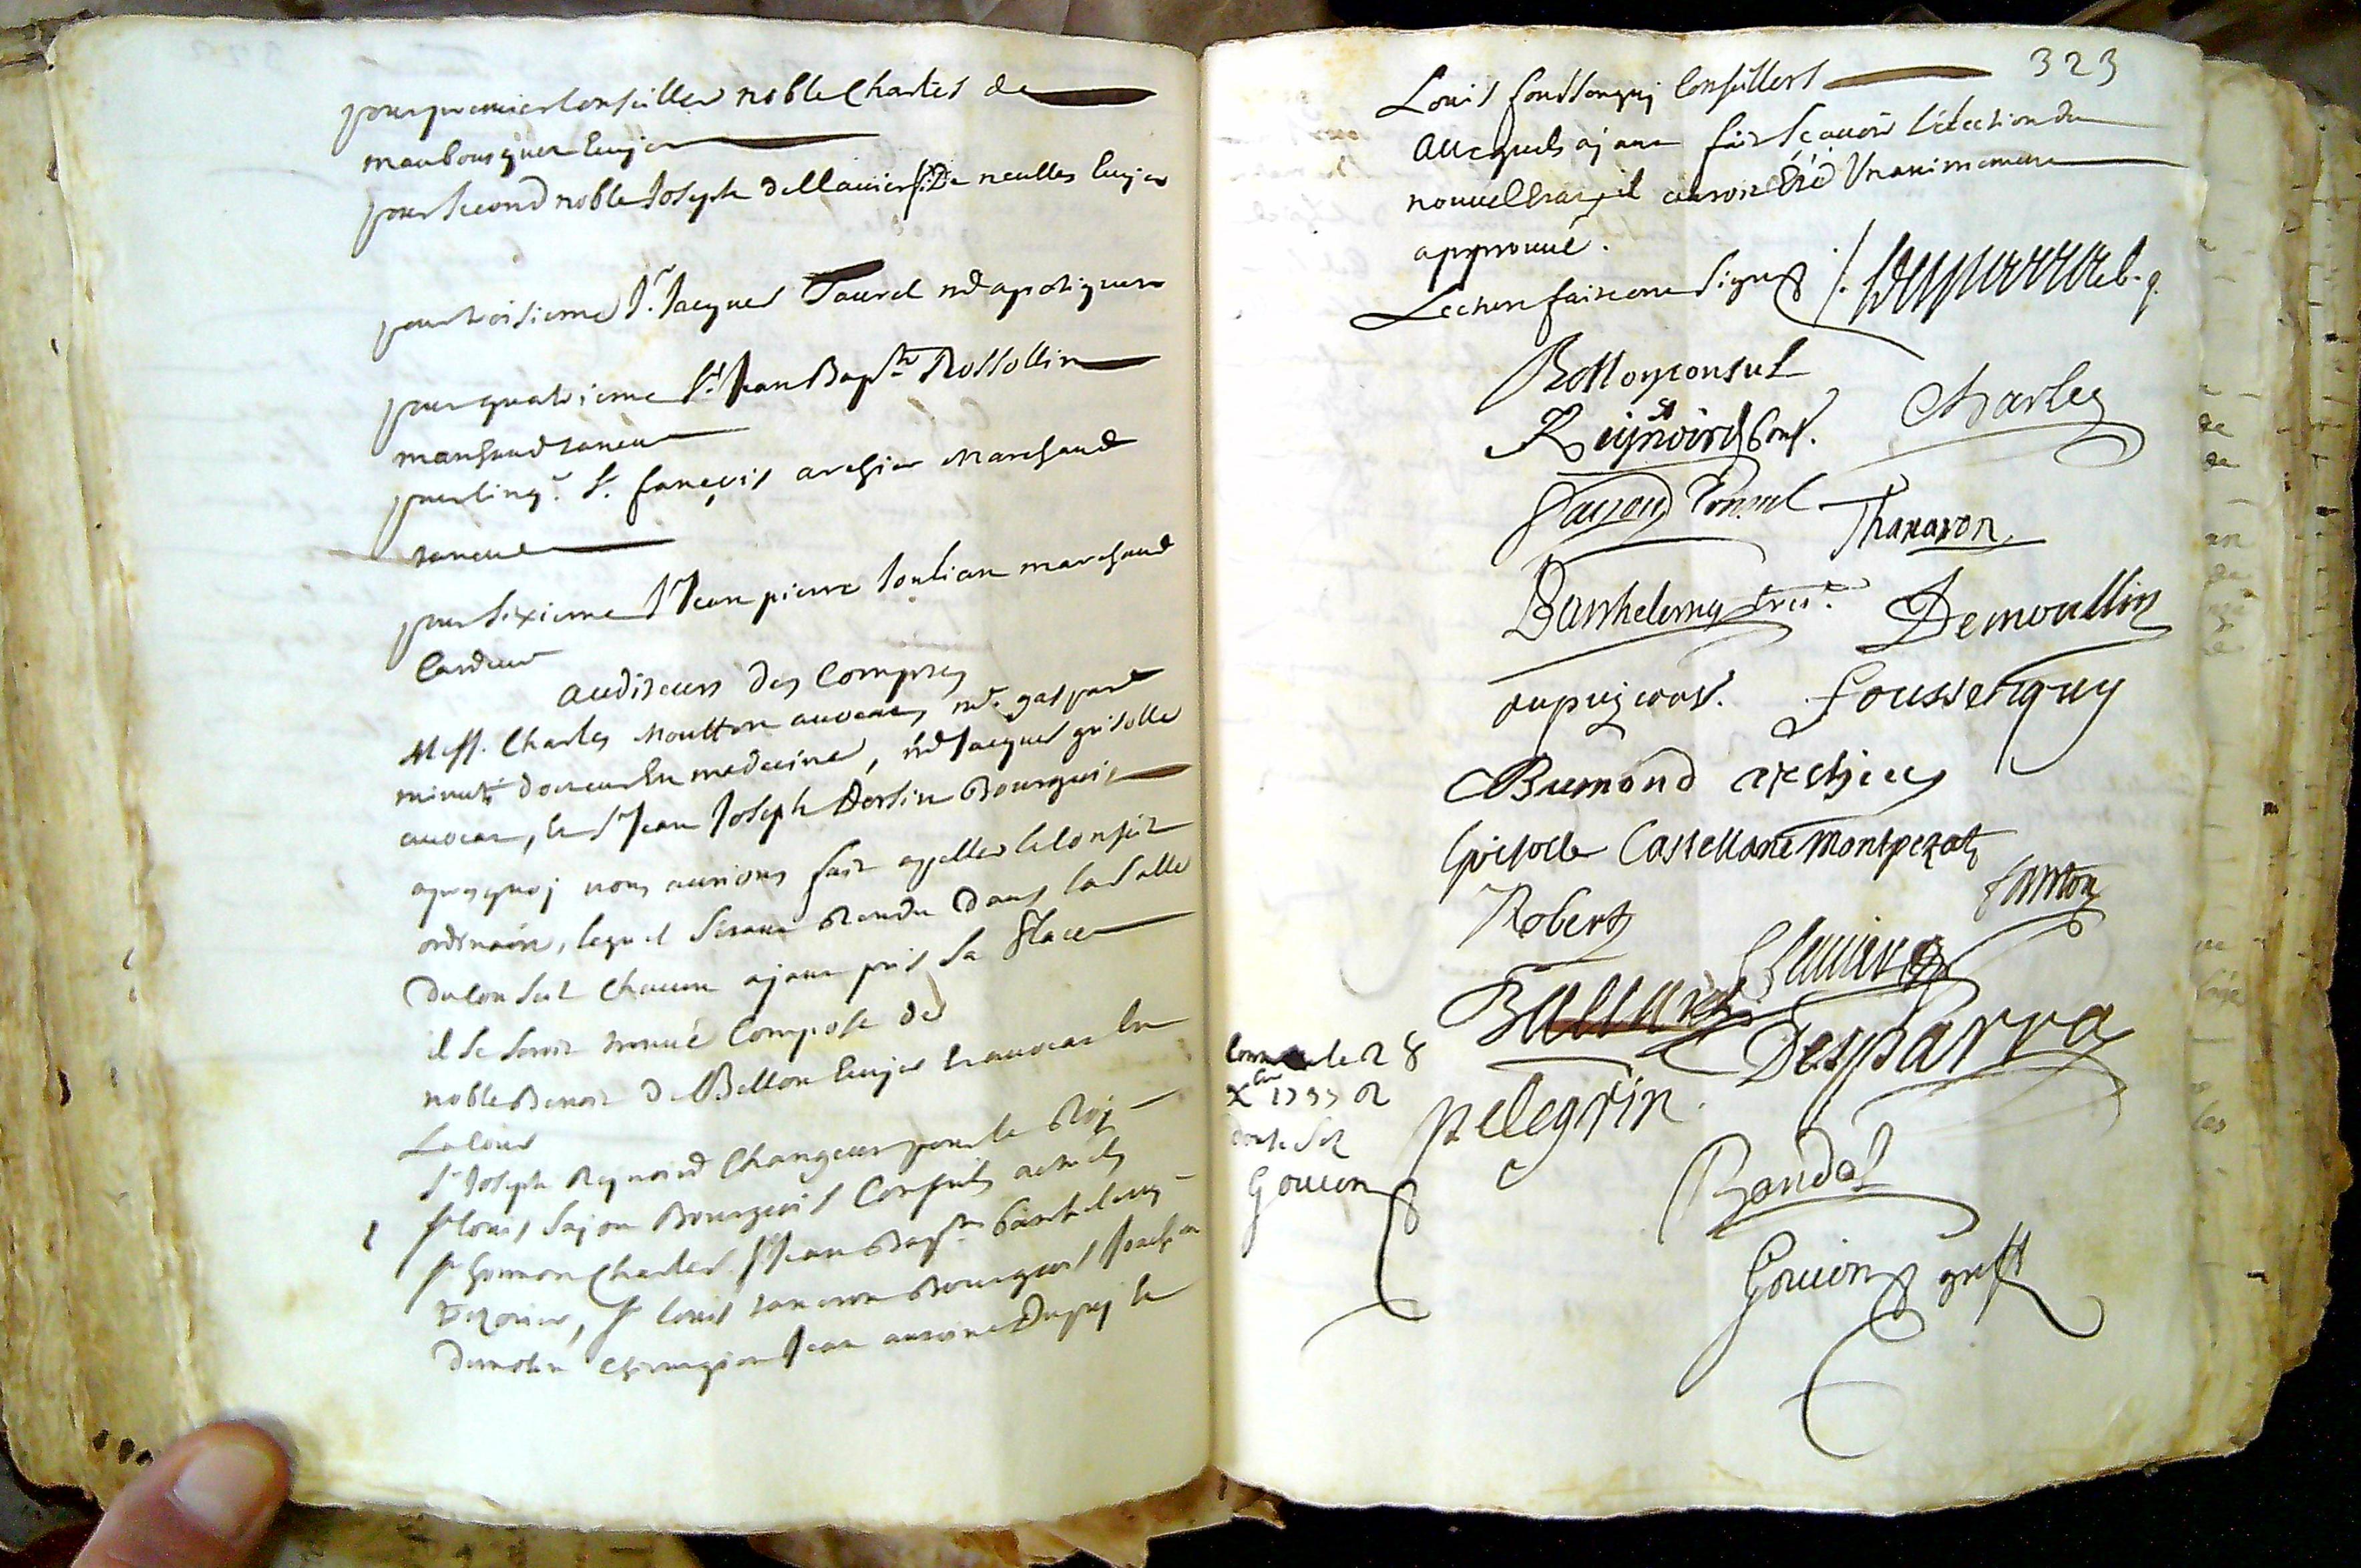 pour premier Conseiller noble Charles de
maubousquet Ecuyer
pour second noble Joseph dellauier Sr De neulles Ecuyer
pour troisieme Sr. Jacques Taurel md apotiquere
pour quatrieme Sr. Jean Bapte Rossollin
marchand taneur
pour Cinqe. Sr. françois archier Marchand
taneur
pour sixieme Sr Jean pierre Jonlian marchand
Cardeur
auditeurs des Comptes
Messr. Charles Moutton auocat, mr. gaspard
minuti docteur En medecine, md Jacques grisolle
auocat, le Sr Jean Joseph Bourgois
apres quoj nous aurions fait appeller le Conseil
ordinaire, lequel s'etant Rendu dans la Salle
du Conseil Chacun ajant pris Sa place
il se seroit trouué Composé de
noble Benoit De Bellon Ecuyer auocat En
La Cour
Sr Joseph Reynoird Changeur pour le Roj
Sr louis Sajou Bourgeois Consuls actuels
Sr honnoré Charles, Sr Jean Bapte barthelemy
trezorier, Sr louis tanaron Bourgois Joseph
demolin Chirurgien Jean antoine Dupuy le
323
Louis foussenquj Conseillers
Auxquels ajant fait sçauoir L'election du
nouuel Etat, il auroit Eté Unanimement
approuué.
Lecture faite ont signes
Bellon consul
Reynoird Cons.
Charles
Sajou Consul
Thanaron
Barthelemy tres.r
Demoullin
dupuy cons.
Foussenquy
Bremond archier
Grisolle Castellane Montpezat
Robert
Desparra
pelegrin
Randol
Gouion greff
le 28
Xbre 1737 R
douze sol
Gouion